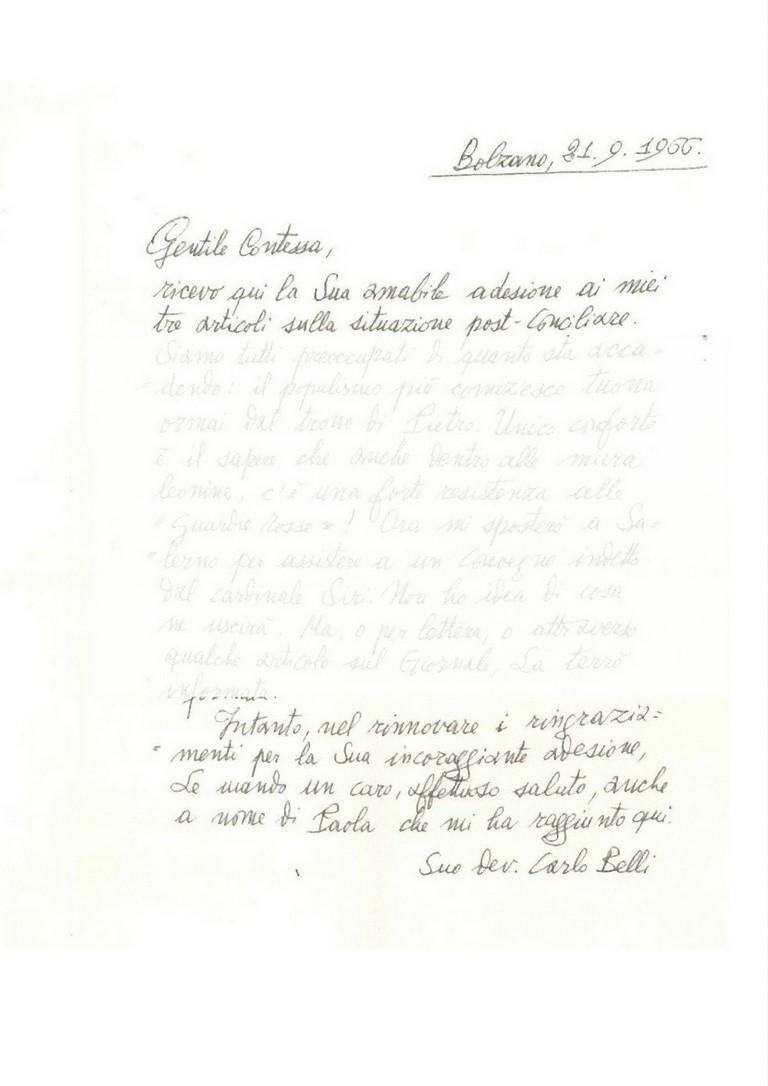 Bolzano, 21.9.1966.
Gentile Contessa,
ricevo qui la Sua amabile adesione ai miei
tre articoli sulla situazione post-Conciliare.
Siamo tutti preoccupati di quanto sta acca=
=dendo: il populismo più comiziesco tuona
ormai dal trono di Pietro. Unico conforto
è il sapere che anche dentro alle mura
leonine, c'è una forte resistenza alle
"Guardie rosse"! Ora mi sposterò a Sa=
=lerno per assistere a un Convegno indetto
dal cardinale Siri. Non ho idea di cosa
ne uscirà. Ma, o per lettera, o attraverso
qualche articolo sul Giornale, La terrò
informata.
Intanto, nel rinnovare i ringrazia=
=menti per la Sua incoraggiante adesione,
Le mando un caro, affettuoso saluto, anche
a nome di Paola che mi ha raggiunto qui.
Suo dev. Carlo Belli